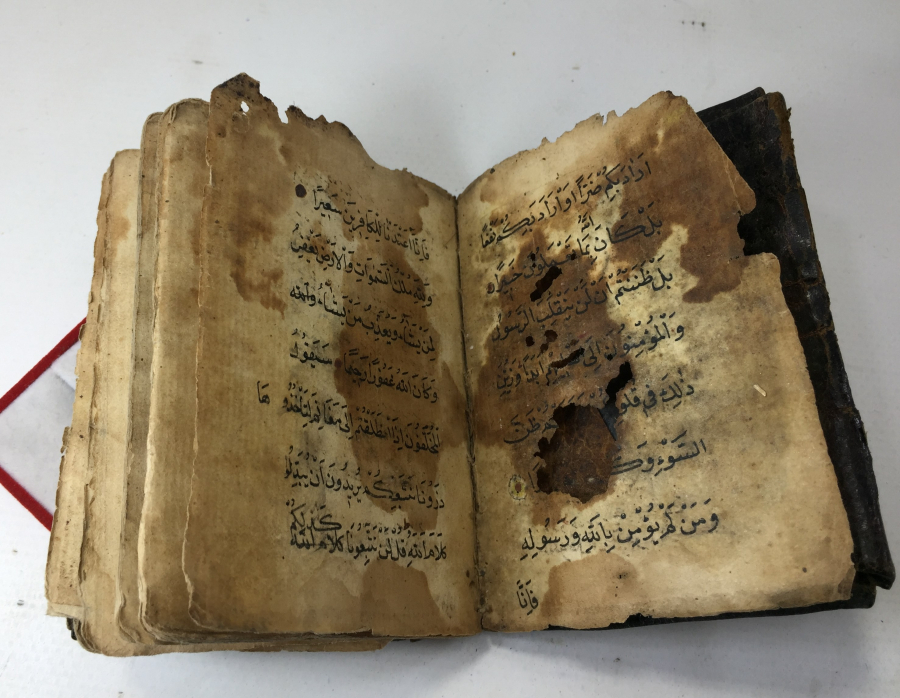 اَرَادَ بِكُمْ ضَرًّا اَوْ اَرَادَ بِكُمْ نَفْعًا
بَلْ كَانَ اللّٰهُ بِمَا تَعْمَلُونَ خَبِيرًا
بَلْ ظَنَنْتُمْ اَنْ لَنْ يَنْقَلِبَ الرَّسُولُ
وَالْمُؤْمِنُونَ اِلَى اَبَدًا وَزُيِّنَ
ذٰلِكَ فِي ظَنَّ
السَّوْءِ
وَمَنْ لَمْ يُؤْمِنْ بِاللّٰهِ وَرَسُولِهِ
فَاِنَّا
فَاِنَّا اَعْتَدْنَا لِلْكَافِرِينَ سَعِيرًا
وَلِلّٰهِ مُلْكُ السَّمٰوَاتِ وَالْاَرْضِ يَغْفِرُ
لِمَنْ يَشَاءُ وَيُعَذِّبُ مَنْ يَشَاءُ
وَكَانَ اللّٰهُ غَفُورًا رَحِيمًا سَيَقُولُ
الْمُخَلَّفُونَ اِذَا انْطَلَقْتُمْ اِلَى مَغَانِمَ لِتَأْخُذُوهَا
ذَرُونَا نَتَّبِعْكُمْ يُرِيدُونَ اَنْ يُبَدِّلُوا
كَذٰلِكُمْ
كَلَامَ اللّٰهِ قُلْ لَنْ تَتَّبِعُونَا كَلَامَ اللّٰهِ